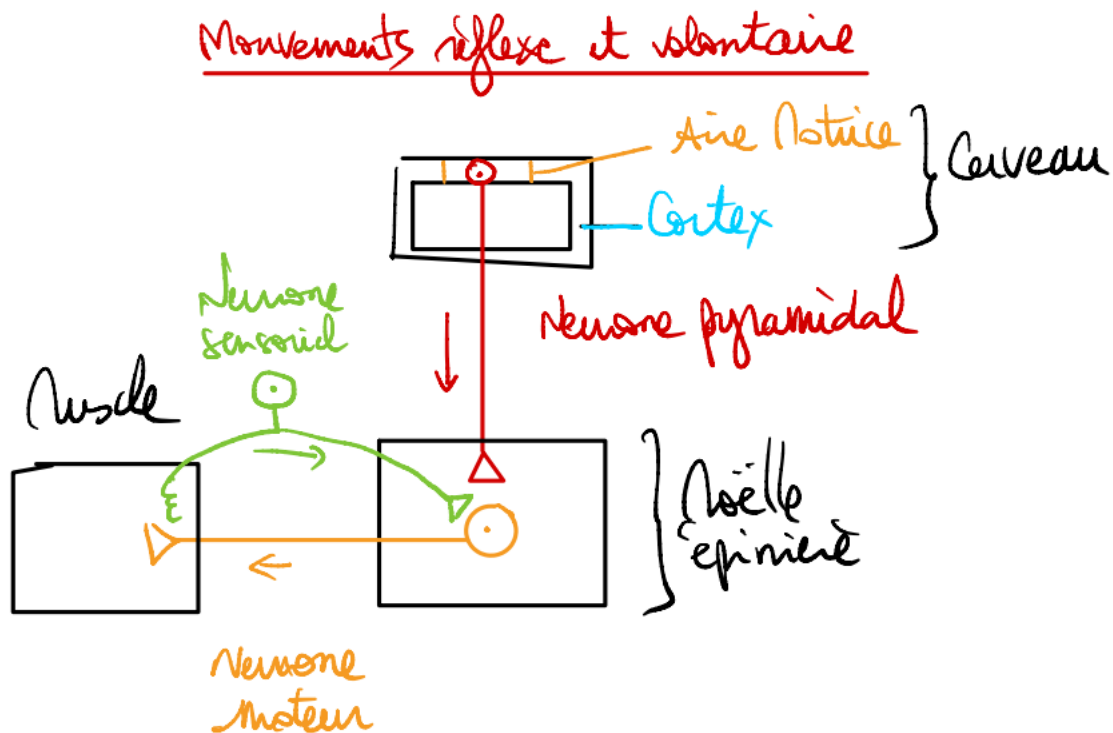 Mouvements réflexe et volontaire
Aire Motrice
Cerveau
Cortex
Neurone
sensoriel
Neurone pyramidal
Muscle
Moëlle
épinière
Neurone
moteur